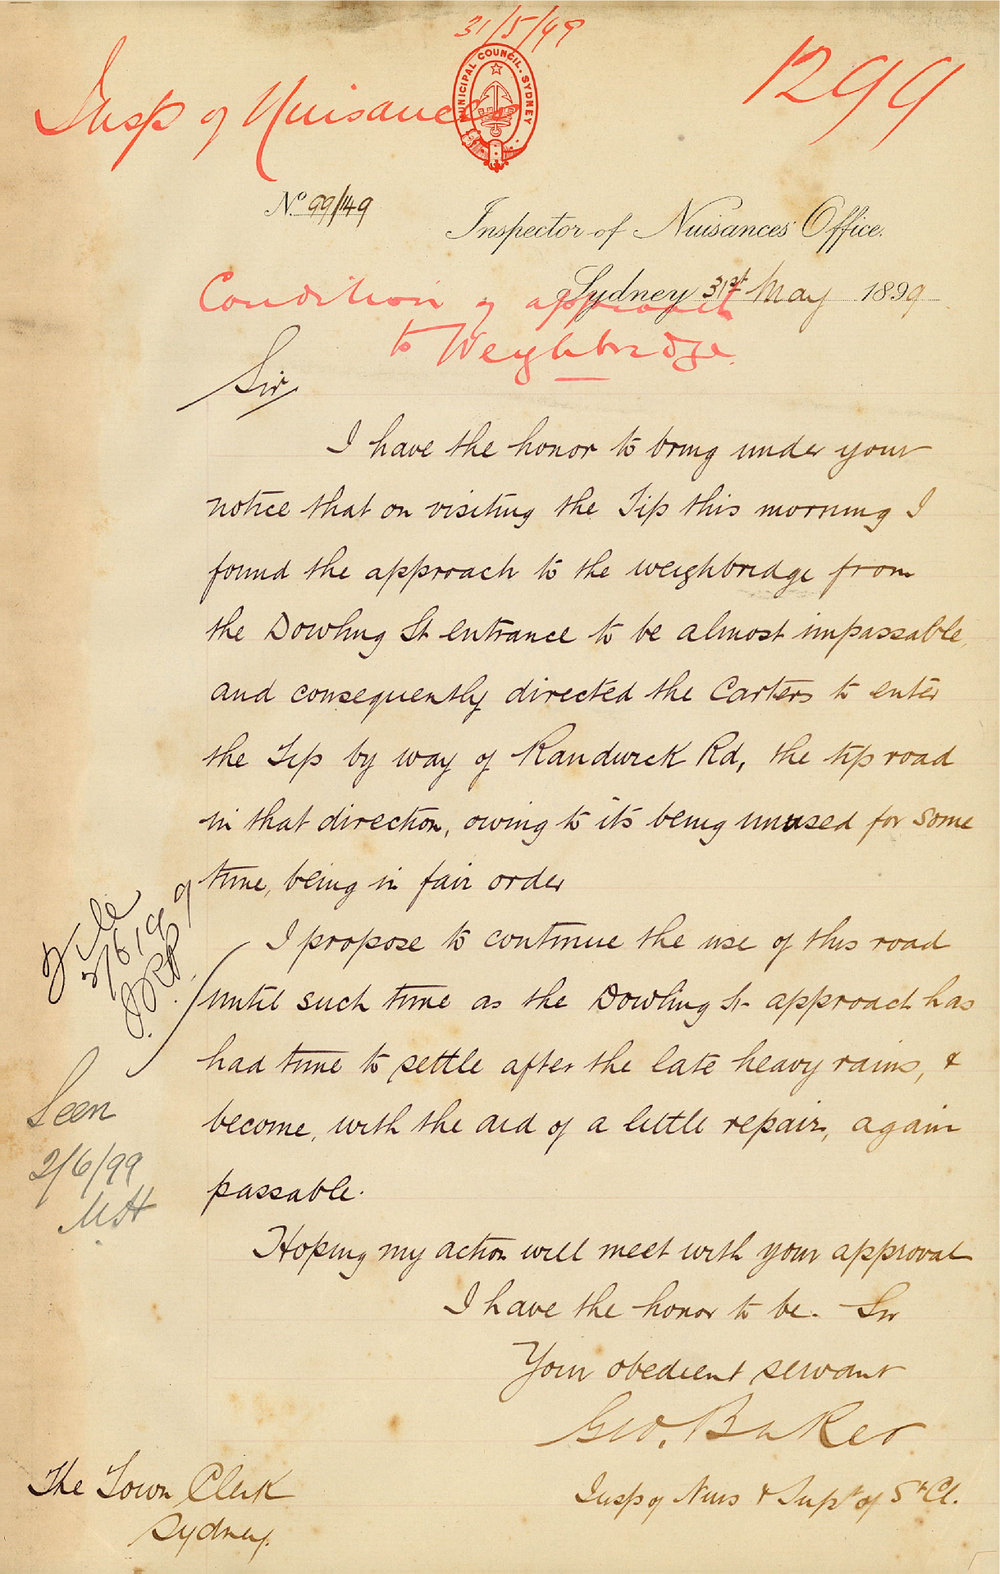 31/5/99
1299
Insp of Nuisances
MUNICIPAL COUNCIL. SYDNEY
No 99/149
Inspector of Nuisances' Office.
Sydney 31st May 1899
Condition of approach
to Weighbridge.
Sir,
I have the honor to bring under your
notice that on visiting the Tip this morning I
found the approach to the weighbridge from
the Dowling St entrance to be almost impassable,
and consequently directed the Carters to enter
the Tip by way of Randwick Rd, the tip road
in that direction, owing to its being unused for some
time, being in fair order
I propose to continue the use of this road
until such time as the Dowling St approach has
had time to settle after the late heavy rains, &
become, with the aid of a little repair, again
passable.
Hoping my action will meet with your approval
I have the honor to be. Sir
Your obedient servant
Geo. Baker
Insp of Nuis & Supt of St Cl.
The Town Clerk
Sydney.
File
Seen
2/6/99